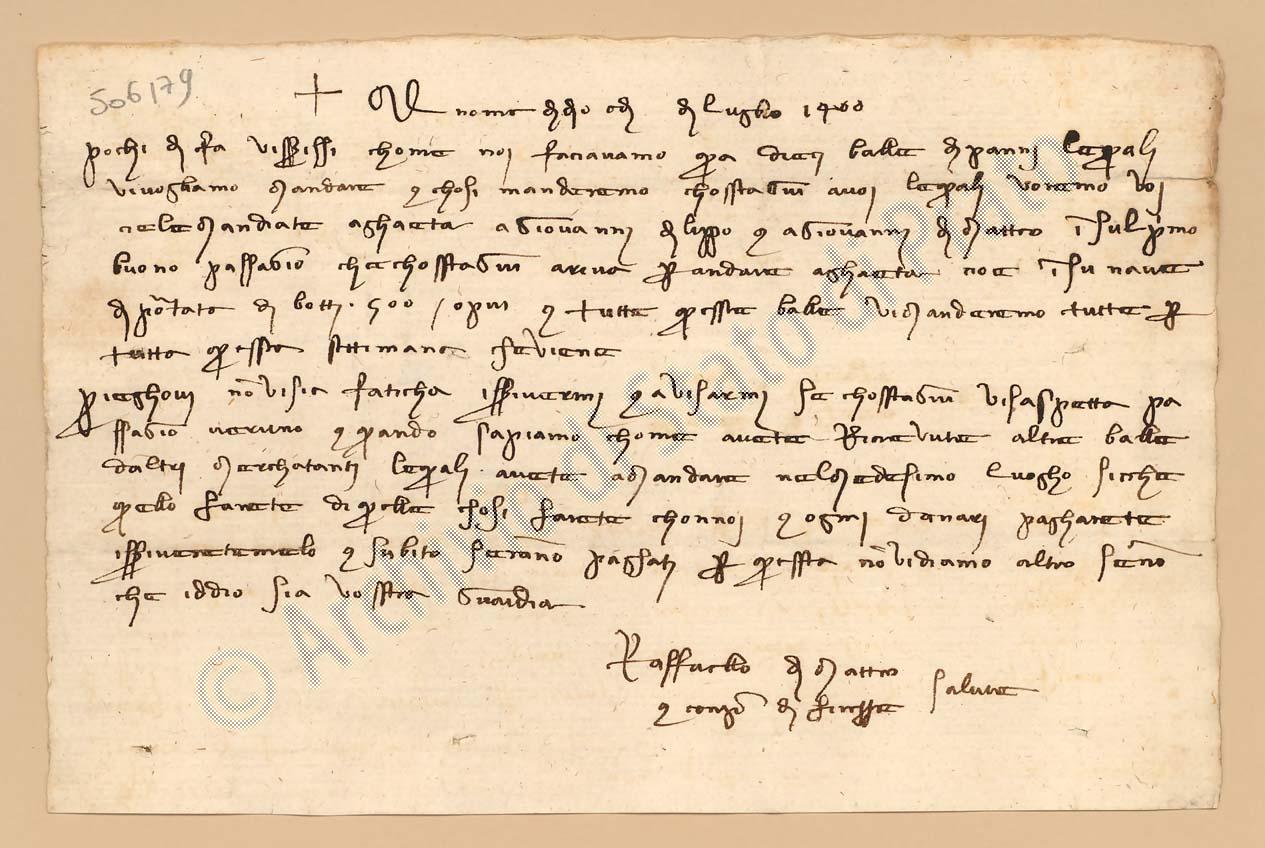 506179
+ Al nome di dio adi di luglio 1400
pochi di fa visscrissi chome noi faciavamo qua dieci balle di panni lequali
vivogliamo mandare e chosi manderemo chosstagiu avoi lequali voremo voi
cielemandiate aghaeta agiovanni di lippo e agiovanni di matteo īsul primo
buono passagio chechosstagiu ariva per andare aghaeta cioe īsu nave
di portata di botti 500 /opiu e tutte quesste balle vimanderemo tutte per
tutta quessta settimana cheviene
prieghovi nō visia faticha isscrivermi e avisarmi se chosstagiu visaspetta pa
ssagio veruno e quando sapiamo chome avete ricievute altre balle
daltri merchatanti lequali avete amandare nelmedesimo luogho sicche
quello farete di quelle chosi farete chonnoi e ogni danari pagharete
isscriveretemelo e subito serāno paghati per quessta nō vidiamo altro senō
che iddio sia vosstra guardia
Raffaello di matteo
e conpag di firenze salute
© Archivio di Stato di Prato